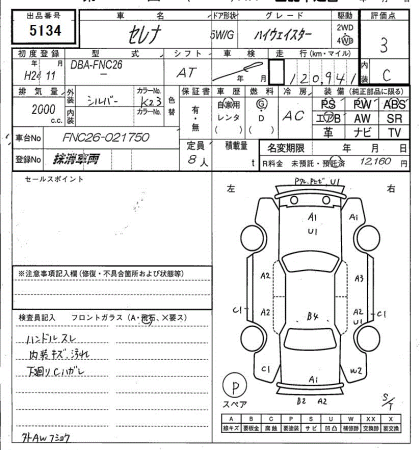 出品番号 車名 ドア形状 グレード 駆動 評価点
5134 セレナ 5W/G ハイウェイスター 2WD 4WD 3
初度登録 型式 シフト 車検 走行(km・マイル) 内装
H24年 11月 DBA-FNC26 AT 120,941 C
排気量 外装 カラーNo. 色替 保証書 車歴 燃料 冷房 装備(純正部品に限る)
2000 c.c. シルバー K23 有・無 自家用 レンタ G D AC PS PW ABS
内装 カラーNo. エアB AW SR
革 ナビ TV
車台No FNC26-021750 定員 8人 積載量 t 名変期限 年 月 日
登録No 抹消車両 R料金 未預託・預託済 12,160 円
セールスポイント
左 右
※注意事項記入欄(修復・不具合箇所および状態等)
検査員記入 フロントガラス(A・飛石、X要ス)
ハンドルスレ
内装キズ、汚れ
下廻りCハガレ
外AWフミヨク
A1
U1
A2 A2 A2 A3
C1 A2 B4 A2 C1
C1 A1 W2
B2 A2
P
スペア
S/T
A B C P S U W X XX X
線キズ 要板金 腐蝕 要塗装 サビ 凹凸 補修跡 交換跡 要交換